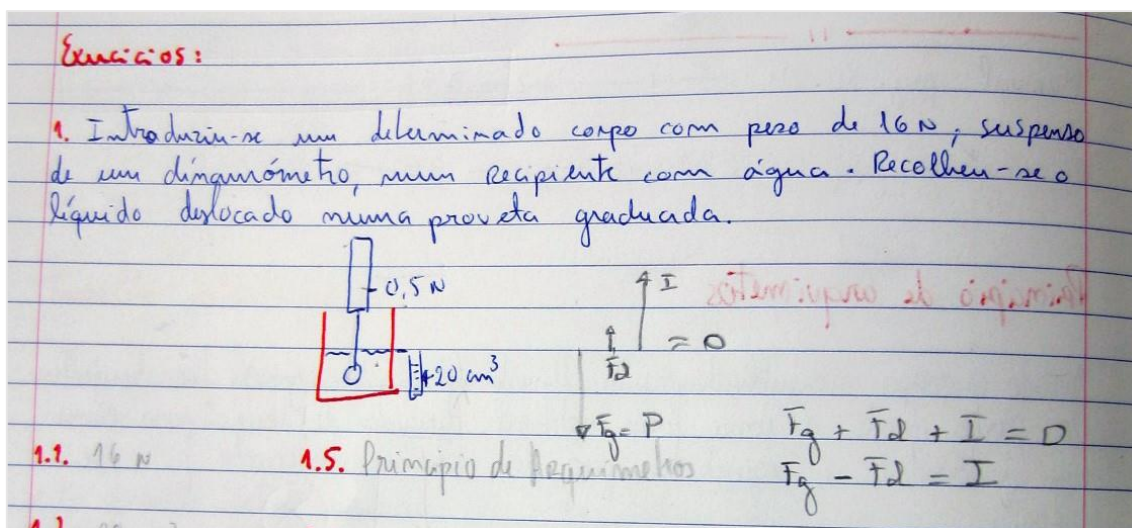 Exercícios:
1. Introduziu-se um determinado corpo com peso de 16 N, suspenso
de um dinamómetro, num recipiente com água. Recolheu-se o
líquido deslocado numa proveta graduada.
0,5 N
20 cm³
I
Fd
= 0
Fg = P
Fg + Fd + I = 0
Fg - Fd = I
1.1. 16 N
1.5. Princípio de Arquimetros